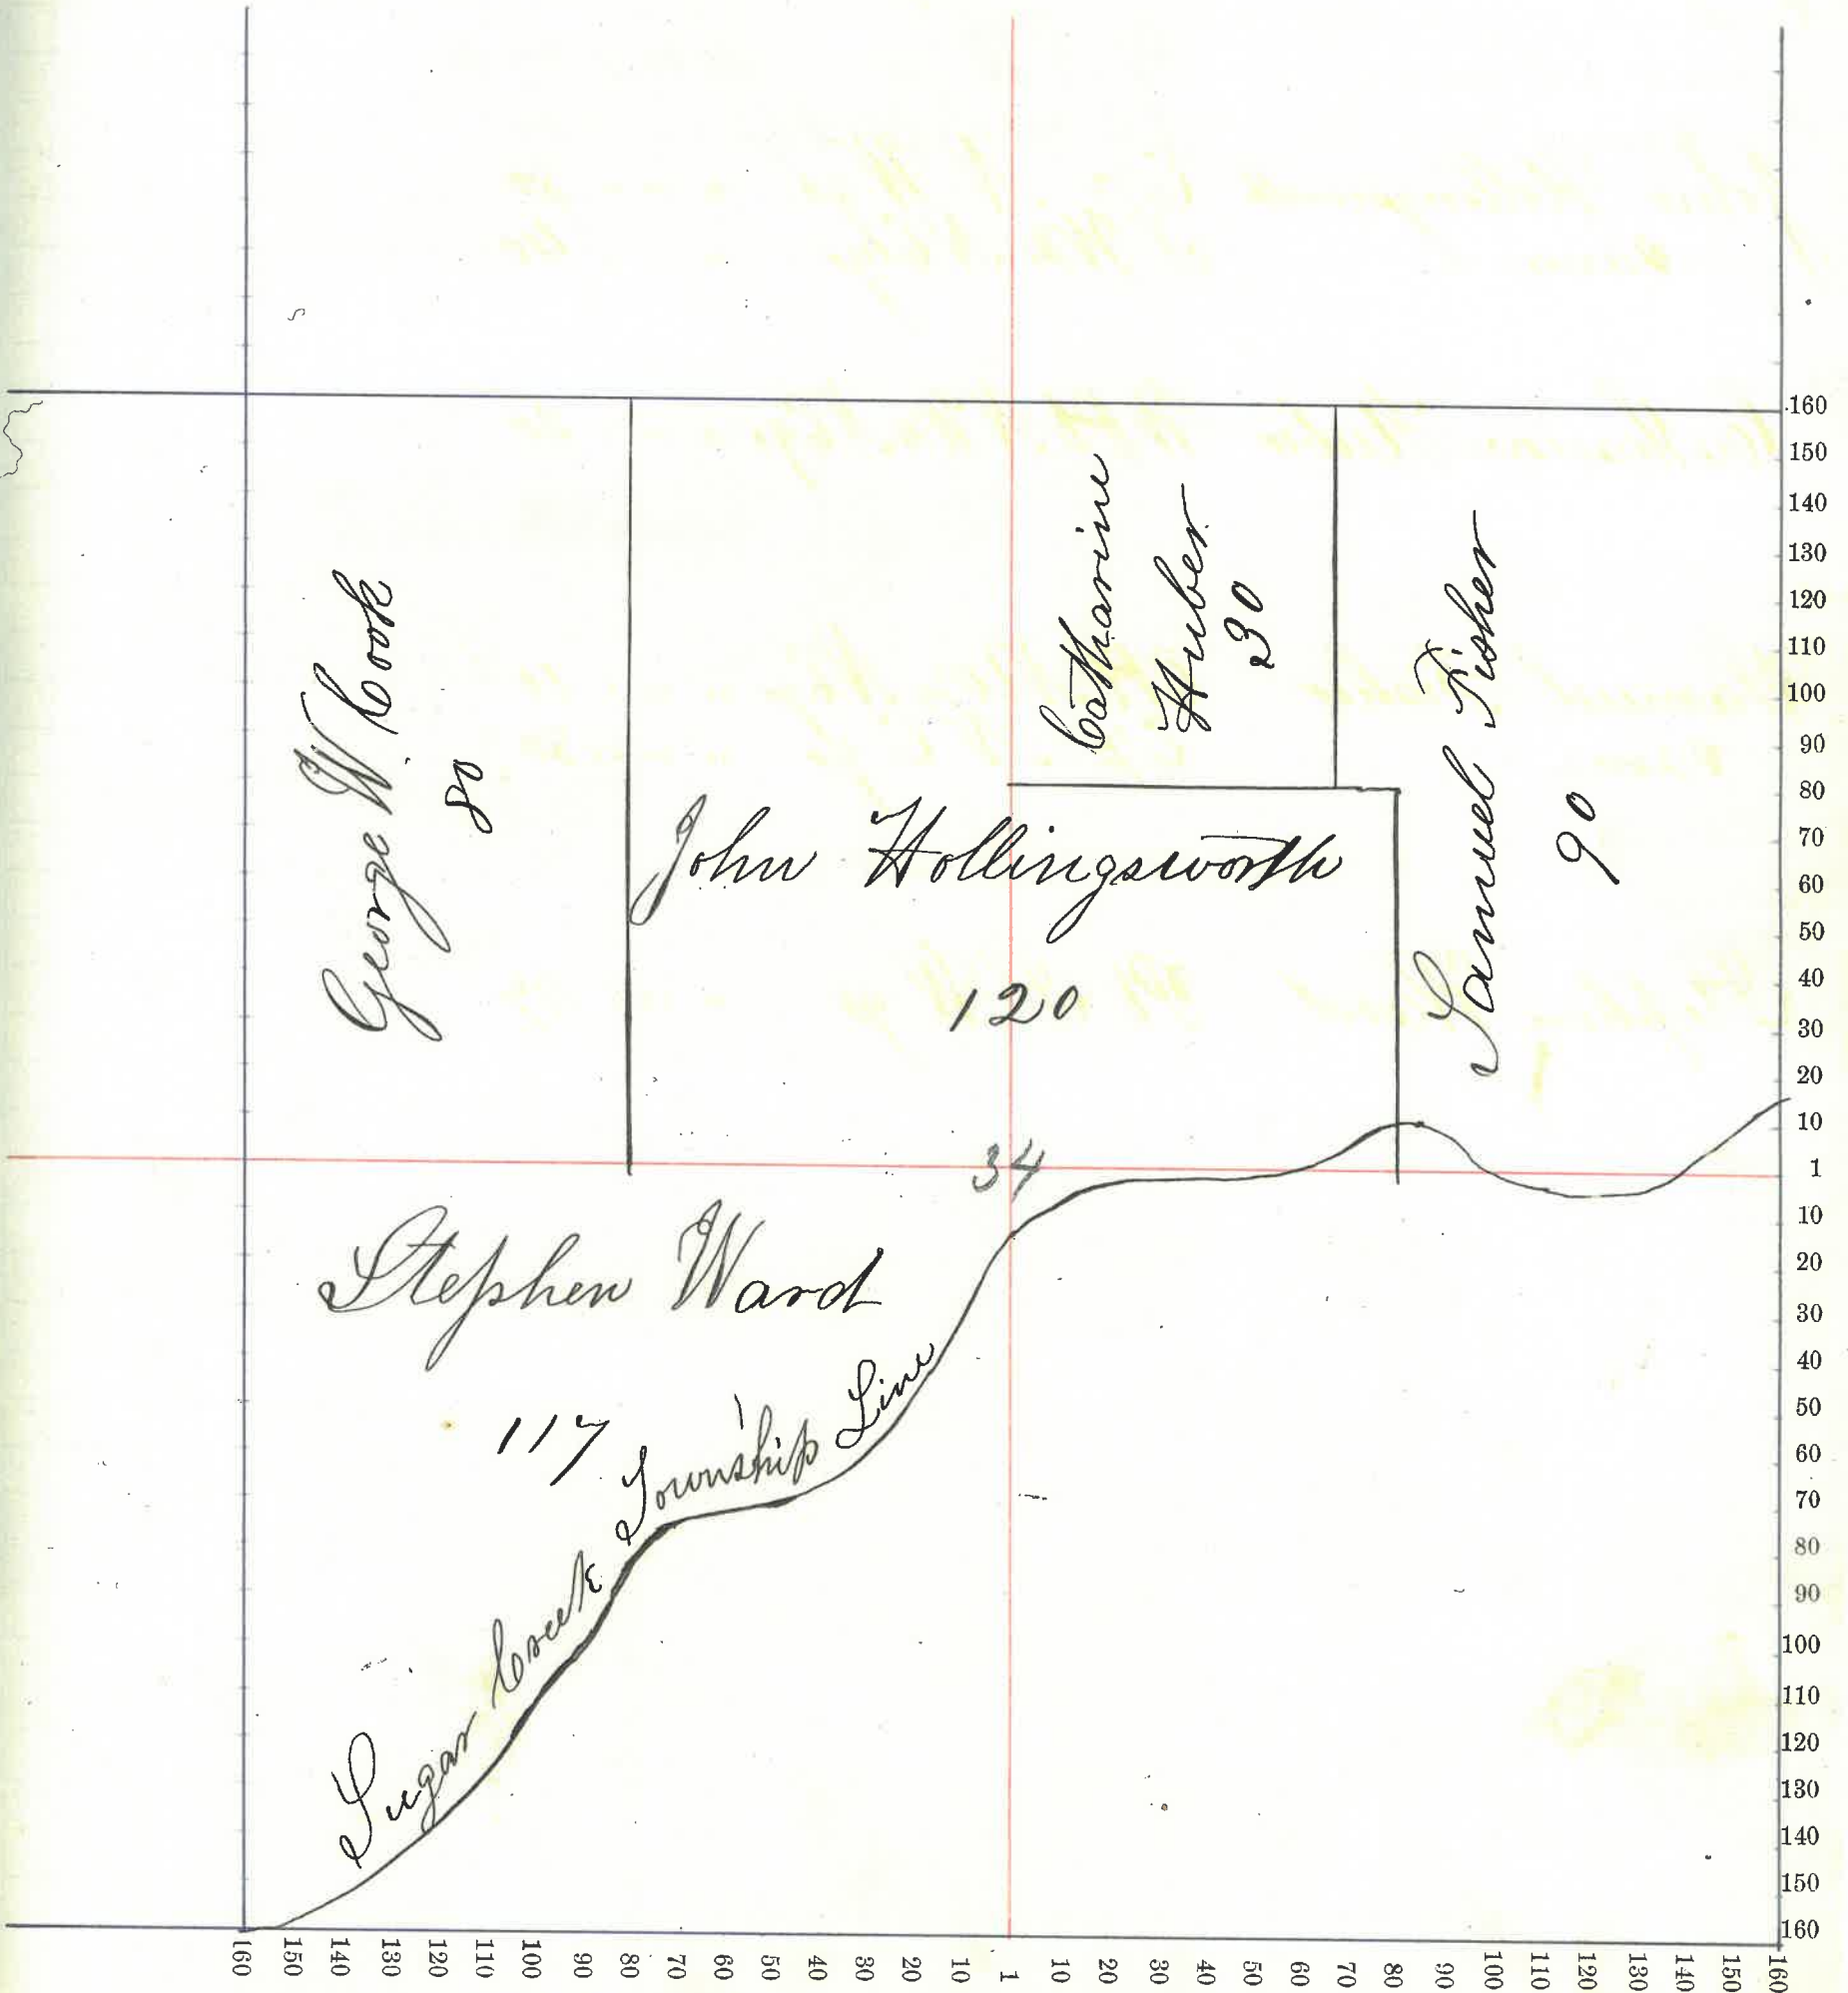 George W. Cook
80
Catharine
Huber
30
Samuel Fisher
90
John Hollingsworth
120
34
Stephen Ward
117
Sugar Creek Township Line
160
150
140
130
120
110
100
90
80
70
60
50
40
30
20
10
1
10
20
30
40
50
60
70
80
90
100
110
120
130
140
150
160
160
150
140
130
120
110
100
90
80
70
60
50
40
30
20
10
1
10
20
30
40
50
60
70
80
90
100
110
120
130
140
150
160